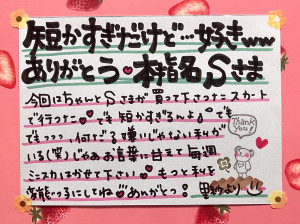 短かすぎだけど…好きww
ありがとう♥本指名Sさま
今回はちゃんとSさまが買って下さったスカート
で行ったー♥でも短かすぎるんよ
でもっっっ 何だろ 嫌いじゃない私が
いる(笑)じゃあお言葉に甘えて毎週
ミニスカはかせて下さい♥もっと私を
変態っ子にしてね♡ありがとっ!
Thank You!